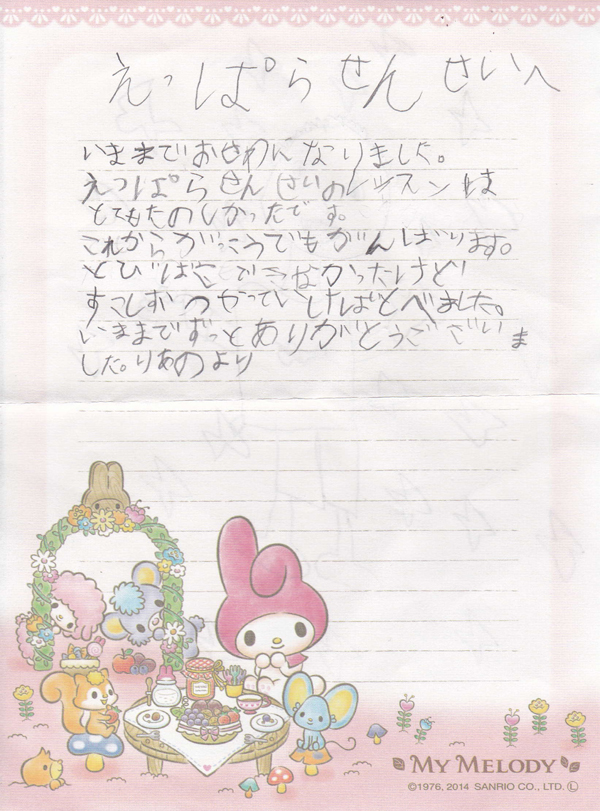 えっぱらせんせいへ
いままでおせわんなりました。
えっぱらせんせいのレッスンは
とてもたのしかったです。
これからがっこうでもがんばります。
とびばこできなかったけど
すこしずつやっていけばとべました。
いままでずっとありがとうございま
した。りあのより
MY MELODY
©1976, 2014 SANRIO CO., LTD. Ⓛ